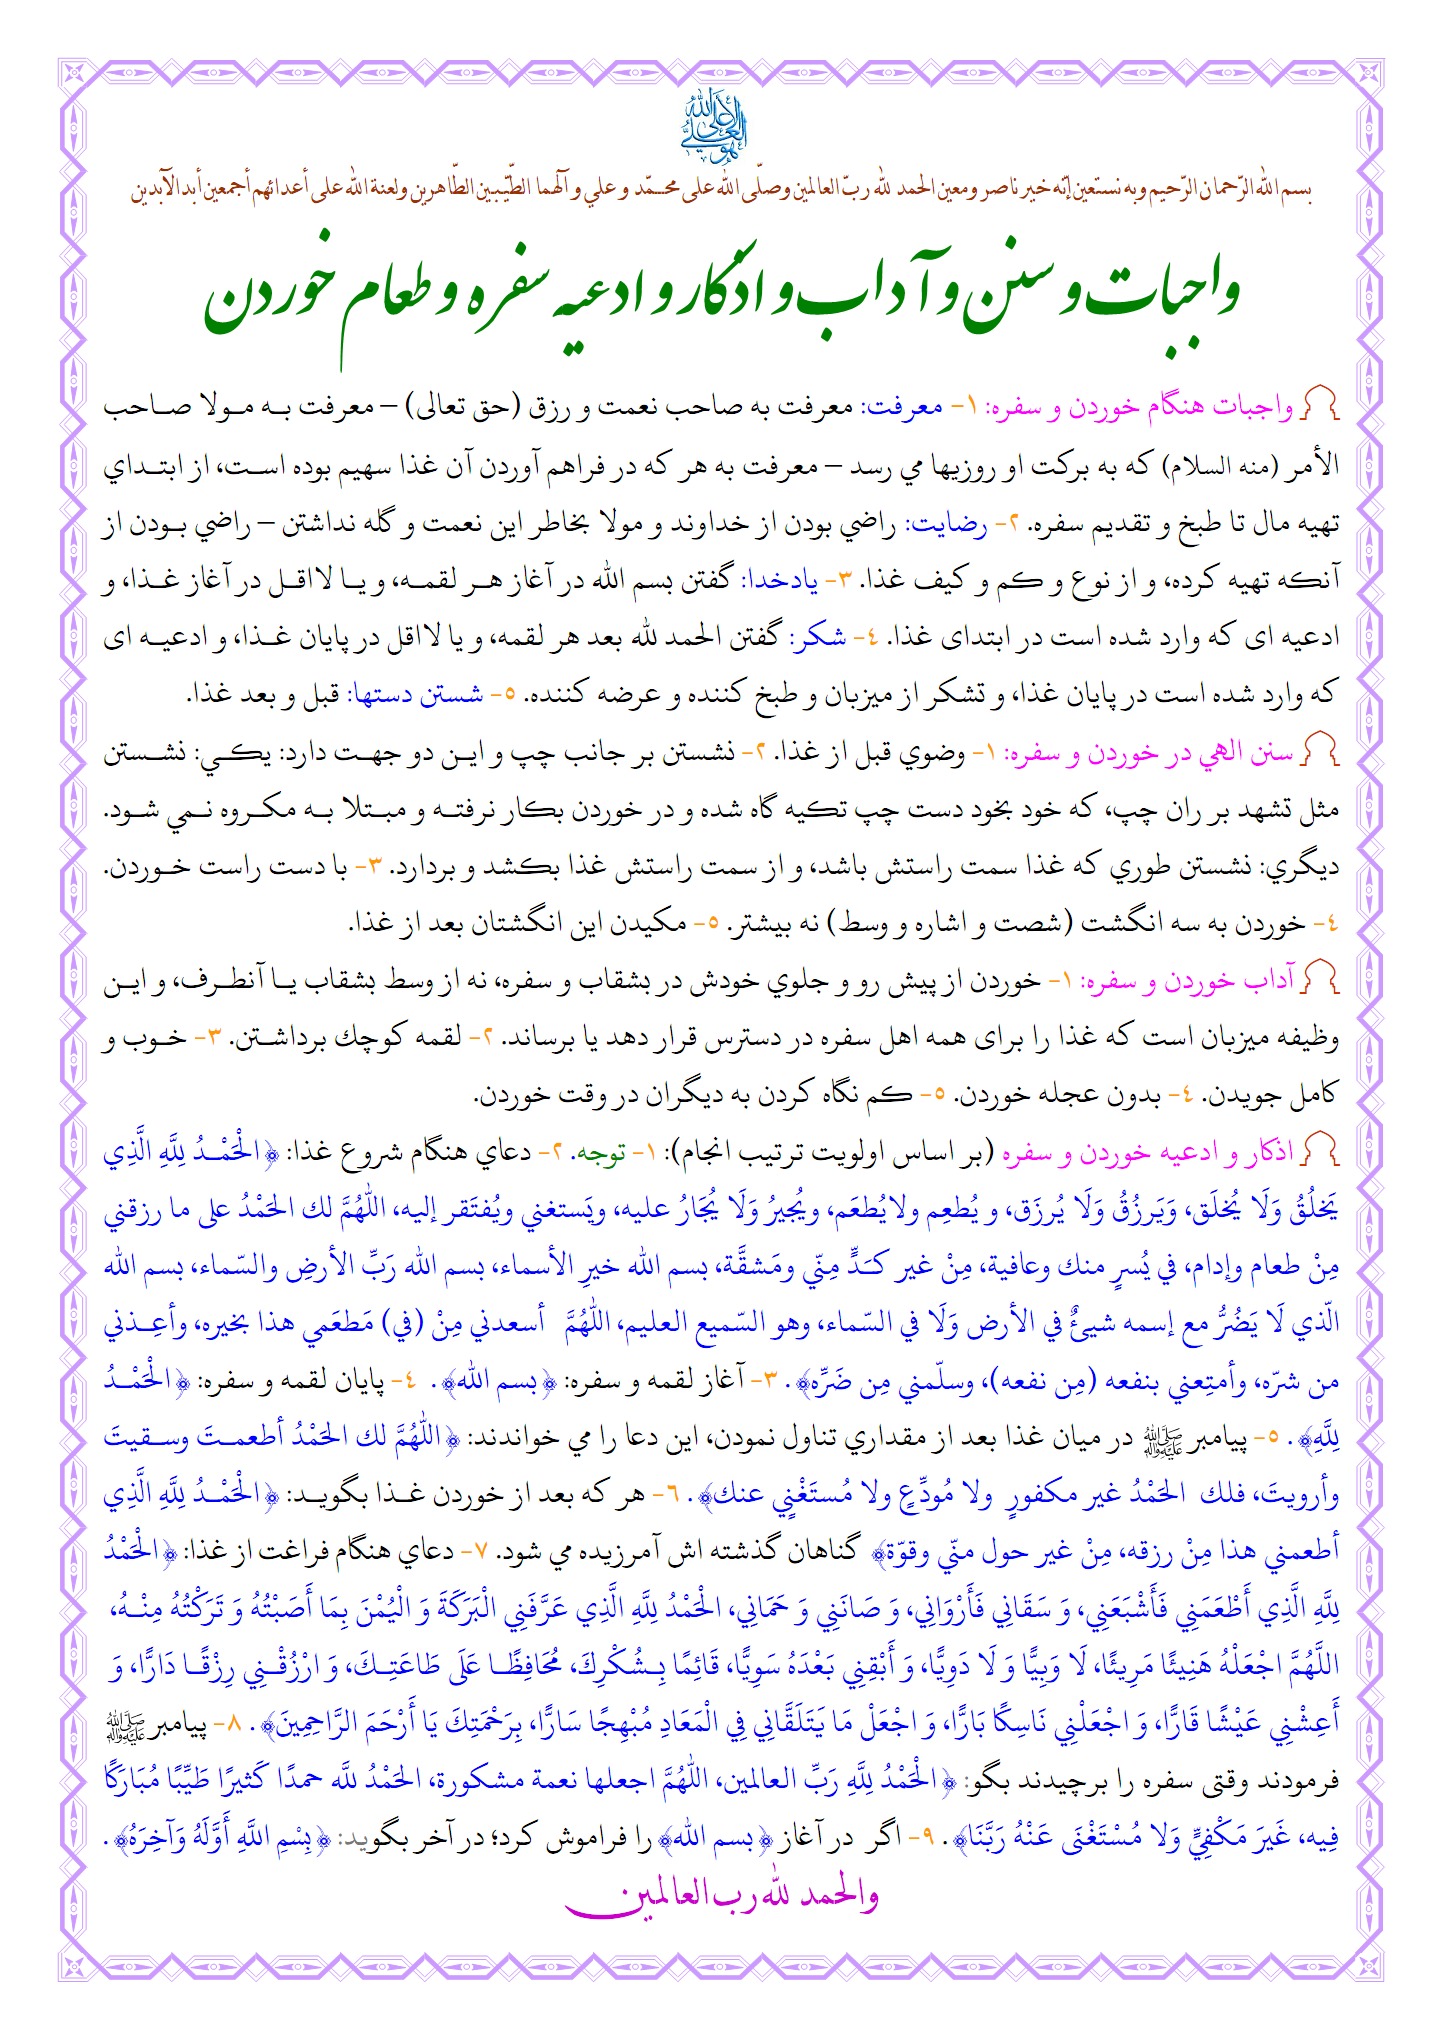 هو العلي الأعلى
بسم الله الرّحمان الرّحيم وبه نستعين إنّه خير ناصر ومعين الحمد لله ربّ العالمين وصلّى الله على محمّد و علي و آلهما الطّيّبين الطّاهرين ولعنة الله على أعدائهم أجمعين أبد الآبدين
واجبات و سنن و آداب و اذکار و ادعیه سفره و طعام خوردن
واجبات هنگام خوردن و سفره: ١- معرفت: معرفت به صاحب نعمت و رزق (حق تعالى) – معرفت به مولا صاحب
الأمر (منه السلام) که به برکت او روزیها می رسد – معرفت به هر که در فراهم آوردن آن غذا سهیم بوده است، از ابتدای
تهیه مال تا طبخ و تقدیم سفره. ٢- رضایت: راضي بودن از خداوند و مولا بخاطر این نعمت و گله نداشتن – راضي بودن از
آنکه تهیه کرده، و از نوع و کم و کیف غذا. ٣- یادخدا: گفتن بسم الله در آغاز هر لقمه، و یا لااقل در آغاز غذا، و
ادعیه ای که وارد شده است در ابتدای غذا. ٤- شکر: گفتن الحمد لله بعد هر لقمه، و یا لااقل در پایان غذا، و ادعیه ای
که وارد شده است در پایان غذا، و تشکر از میزبان و طبخ کننده و عرضه کننده. ٥- شستن دستها: قبل و بعد غذا.
سنن الهي در خوردن و سفره: ١- وضوي قبل از غذا. ٢- نشستن بر جانب چپ و این دو جهت دارد: یکي: نشستن
مثل تشهد بر ران چپ، که خود بخود دست چپ تکیه گاه شده و در خوردن بکار نرفته و مبتلا به مکروه نمي شود.
دیگري: نشستن طوري که غذا سمت راستش باشد، و از سمت راستش غذا بکشد و بردارد. ٣- با دست راست خوردن.
٤- خوردن به سه انگشت (شصت و اشاره و وسط) نه بیشتر. ٥- مکیدن این انگشتان بعد از غذا.
آداب خوردن و سفره: ١- خوردن از پیش رو و جلوي خودش در بشقاب و سفره، نه از وسط بشقاب یا آنطرف، و این
وظیفه میزبان است که غذا را برای همه اهل سفره در دسترس قرار دهد یا برساند. ٢- لقمه کوچك برداشتن. ٣- خوب و
کامل جویدن. ٤- بدون عجله خوردن. ٥- کم نگاه کردن به دیگران در وقت خوردن.
اذکار و ادعیه خوردن و سفره (بر اساس اولویت ترتیب انجام): ١- توجه. ٢- دعاي هنگام شروع غذا: ﴿الْحَمْدُ لِلَّهِ الَّذِي
يَخلُقُ وَلَا يُخلَق، وَيَرزُقُ وَلَا يُرزَق، و يُطعِم ولا يُطعَم، ويُجيرُ وَلَا يُجَارُ عليه، ويَستغني ويُفتَقر إليه، اللهُمَّ لك الحَمْدُ على ما رزقني
مِنْ طعام وإدام، في يُسرٍ منك وعافية، مِنْ غير كَدٍّ مِنّي ومَشقَّة، بسم الله خيرِ الأسماء، بسم الله رَبِّ الأرضِ والسّماء، بسم الله
الّذي لَا يَضُرُّ مع إسمه شيئٌ في الأرض وَلَا في السّماء، وهو السّميع العليم، اللهُمَّ أسعدني مِنْ (في) مَطعَمي هذا بخيره، وأعِذني
من شرّه، وأمتِعني بنفعه (مِن نفعه)، وسلّمني مِن ضَرِّه﴾. ٣- آغاز لقمه و سفره: ﴿بسم الله﴾. ٤- پایان لقمه و سفره: ﴿الْحَمْدُ
لِلَّهِ﴾. ٥- پیامبر ﷺ در میان غذا بعد از مقداري تناول نمودن، این دعا را مي خواندند: ﴿اللهُمَّ لك الحَمْدُ أطعمتَ وسقيتَ
وأرويتَ، فلك الحَمْدُ غير مكفورٍ ولا مُودِّعٍ ولا مُستَغْنِي عنك﴾. ٦- هر که بعد از خوردن غذا بگوید: ﴿الْحَمْدُ لِلَّهِ الَّذِي
أطعمني هذا مِنْ رزقه، مِنْ غير حول منّي وقوّة﴾ گناهان گذشته اش آمرزیده مي شود. ٧- دعاي هنگام فراغت از غذا: ﴿الْحَمْدُ
لِلَّهِ الَّذِي أَطْعَمَنِي فَأَشْبَعَنِي، وَ سَقَانِي فَأَرْوَانِي، وَ صَانَنِي وَ حَمَانِي، الْحَمْدُ لِلَّهِ الَّذِي عَرَّفَنِي الْبَرَكَةَ وَ الْيُمْنَ بِمَا أَصَبْتُهُ وَ تَرَكْتُهُ مِنْهُ،
اللَّهُمَّ اجْعَلْهُ هَنِيئًا مَرِيئًا، لَا وَبِيًّا وَ لَا دَوِيًّا، وَ أَبْقِنِي بَعْدَهُ سَوِيًّا، قَائِمًا بِشُكْرِكَ، مُحَافِظًا عَلَى طَاعَتِكَ، وَ ارْزُقْنِي رِزْقًا دَارًّا، وَ
أَعِشْنِي عَيْشًا قَارًّا، وَ اجْعَلْنِي نَاسِكًا بَارًّا، وَ اجْعَلْ مَا يَتَلَقَّانِي فِي الْمَعَادِ مُبْهِجًا سَارًّا، بِرَحْمَتِكَ يَا أَرْحَمَ الرَّاحِمِينَ﴾. ٨- پیامبر ﷺ
فرمودند وقتی سفره را برچیدند بگو: ﴿الْحَمْدُ لِلَّهِ رَبِّ العالمين، اللهُمَّ اجعلها نعمة مشكورة، الحَمْدُ لله حمدًا كَثيرًا طَيِّبًا مُبَارَكًا
فِيه، غَيرَ مَكْفِيٍّ وَلا مُسْتَغْنَى عَنْهُ رَبَّنَا﴾. ٩- اگر در آغاز ﴿بسم الله﴾ را فراموش کرد؛ در آخر بگوید: ﴿بِسْمِ اللَّهِ أَوَّلَهُ وَآخِرَهُ﴾.
والحمد لله رب العالمين